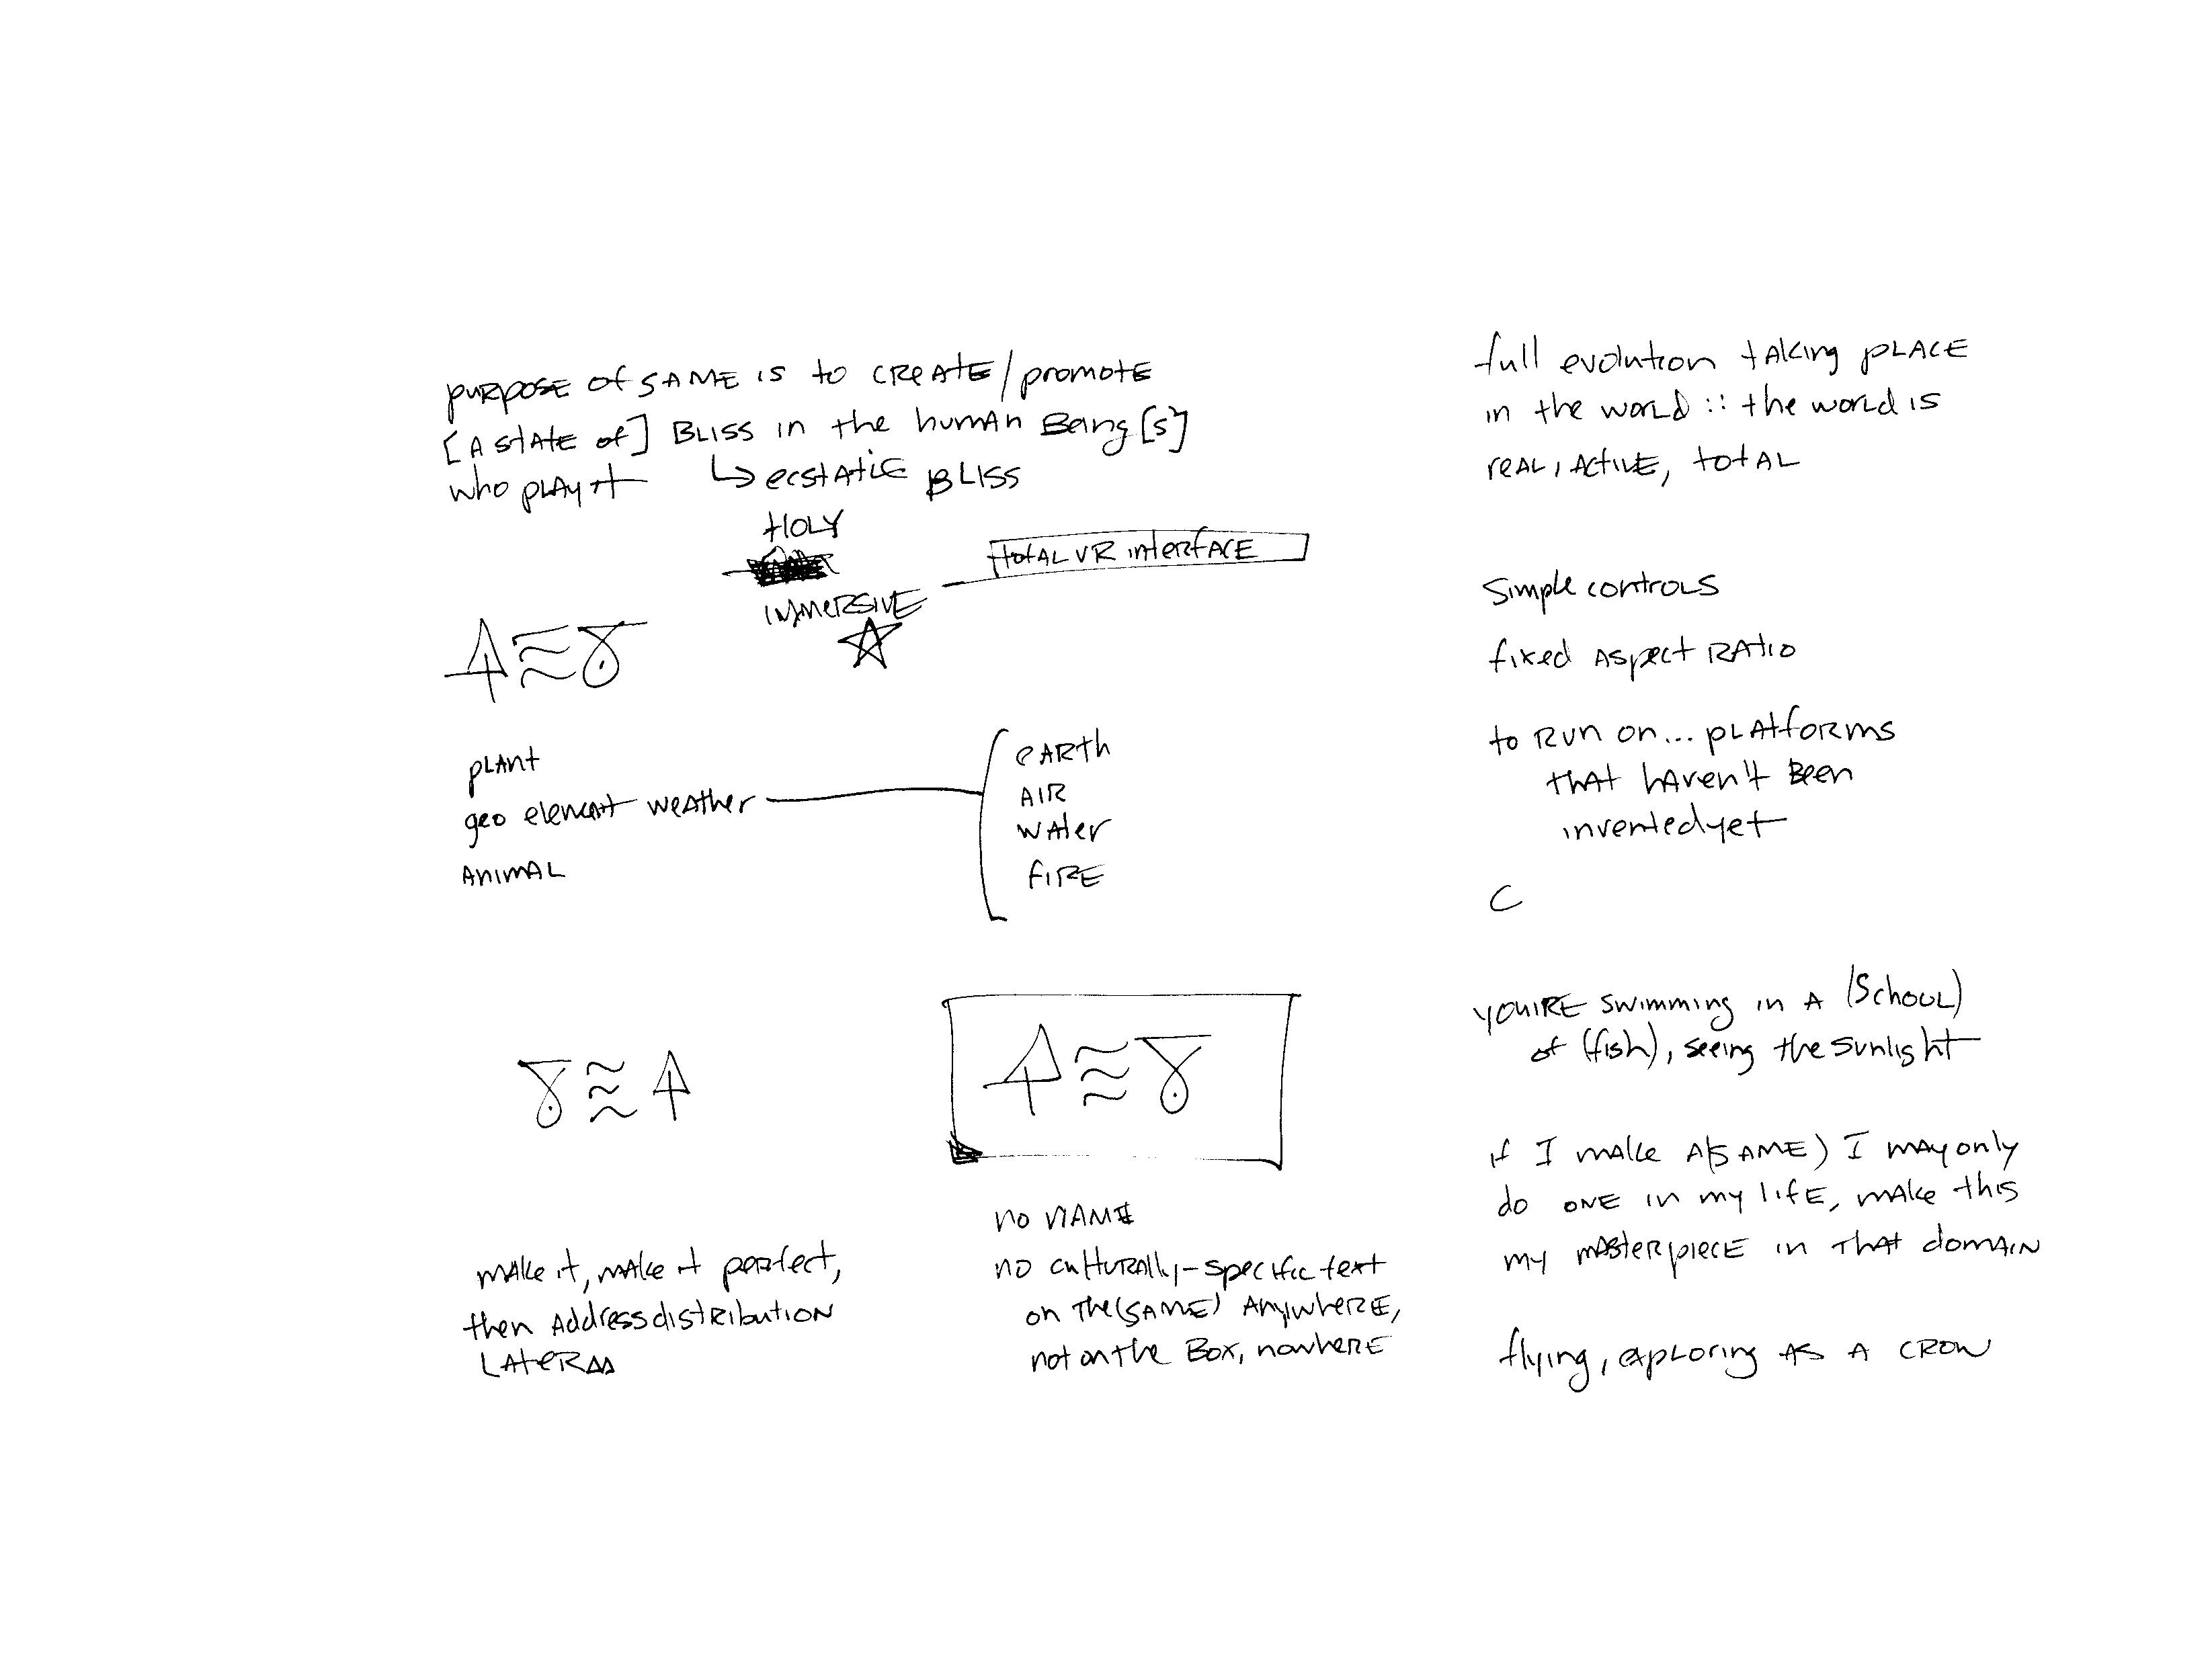 purpose of SAME is to create/promote
[A state of] BLISS in the human Being[s]
who play it ↳ ecstatic BLISS
HOLY
IMMERSIVE
total VR interface
plant
geo element weather
ANIMAL
earth
AIR
water
fire
make it, make it perfect,
then address distribution
LATER
no NAME
no culturally-specific text
on the (SAME) Anywhere,
not on the Box, nowhere
full evolution taking place
in the world :: the world is
real, active, total
Simple controls
fixed aspect ratio
to run on... platforms
that haven't been
invented yet
C
you're swimming in a (School)
of (fish), seeing the sunlight
if I make A (SAME) I may only
do one in my life, make this
my masterpiece in that domain
flying, exploring as a crow